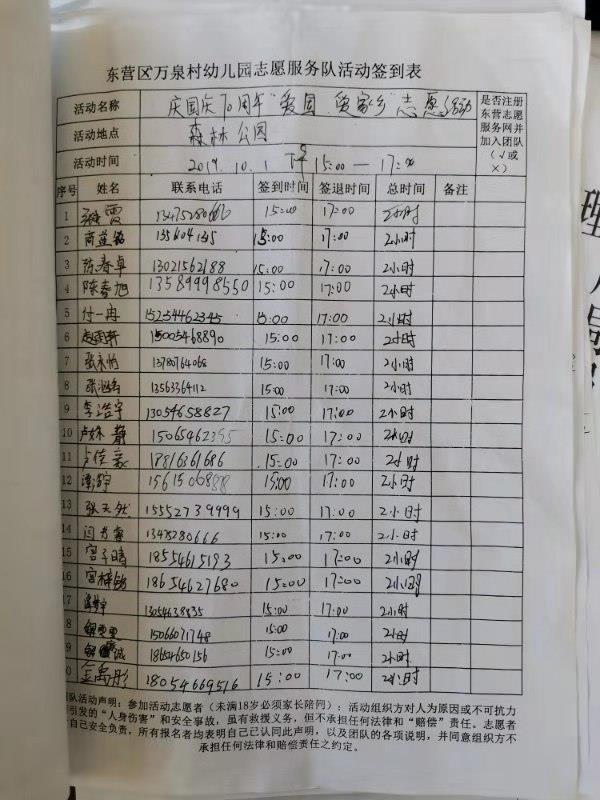 东营区万泉村幼儿园志愿服务队活动签到表
活动名称 庆国庆70周年"爱国、爱家乡"志愿活动 是否注册东营志愿服务网并加入团队(√或×)
活动地点 森林公园
活动时间 2019.10.1 下午 15:00—17:00
序号 姓名 联系电话 签到时间 签退时间 总时间 备注
1 霞 15:00 17:00 2小时
2 15:00 17:00 2小时
3 陈春卓 13021562188 15:00 17:00 2小时
4 陈春旭 13589998550 15:00 17:00 2小时
5 付一冉 15254462345 15:00 17:00 2小时
6 15005468890 15:00 17:00 2小时
7 张 15:00 17:00 2小时
8 张 13563364112 15:00 17:00 2小时
9 李浩宇 13054658827 15:00 17:00 2小时
10 卢姝静 15065462395 15:00 17:00 2小时
11 卢佳豪 18816361686 15:00 17:00 2小时
12 15:00 17:00 2小时
13 张天然 15552739999 15:00 17:00 2小时
14 闫 13475280666 15:00 17:00 2小时
15 宫子晴 18554615193 15:00 17:00 2小时
16 宫梓铭 18654627680 15:00 17:00 2小时
17 13054638835 15:00 17:00 2小时
8 15066071748 15:00 17:00 2小时
9 诚 18654650156 15:00 17:00 2小时
0 金禹彤 18054669516 15:00 17:00 2小时
队活动声明:参加活动志愿者(未满18岁必须家长陪同):活动组织方对人为原因或不可抗力
引发的"人身伤害"和安全事故,虽有救援义务,但不承担任何法律和"赔偿"责任。志愿者
自己安全负责,所有报名者均表明自己已认同此声明,以及团队的各项说明,并同意组织方不
承担任何法律和赔偿责任之约定。
理